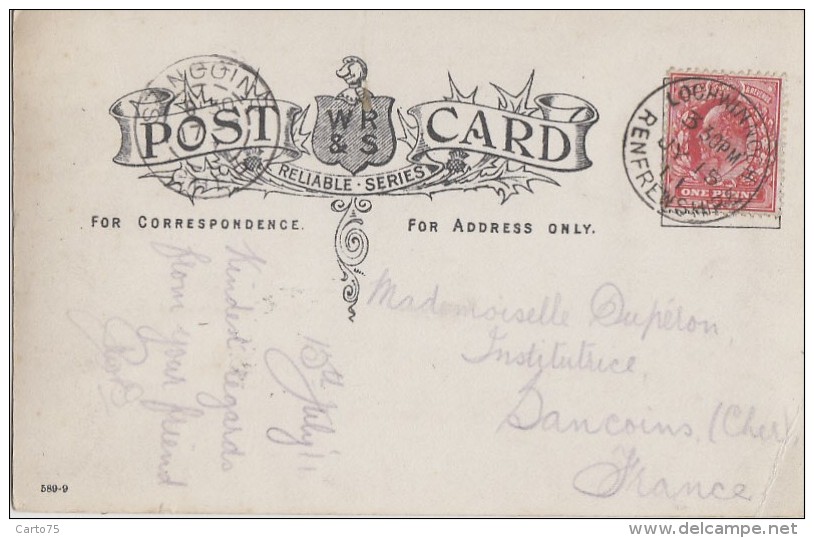 POST CARD
WR
& S
RELIABLE · SERIES
FOR CORRESPONDENCE.
FOR ADDRESS ONLY.
LOCHWINNOCH
3 30PM
JU 15
11
RENFREWSHIRE
ONE PENNY
SANCOINS
15th July '11
Kindest regards
from your friend
Mademoiselle Dupéron,
Institutrice,
Sancoins, (Cher)
France
589-9
Carto75
www.delcampe.net